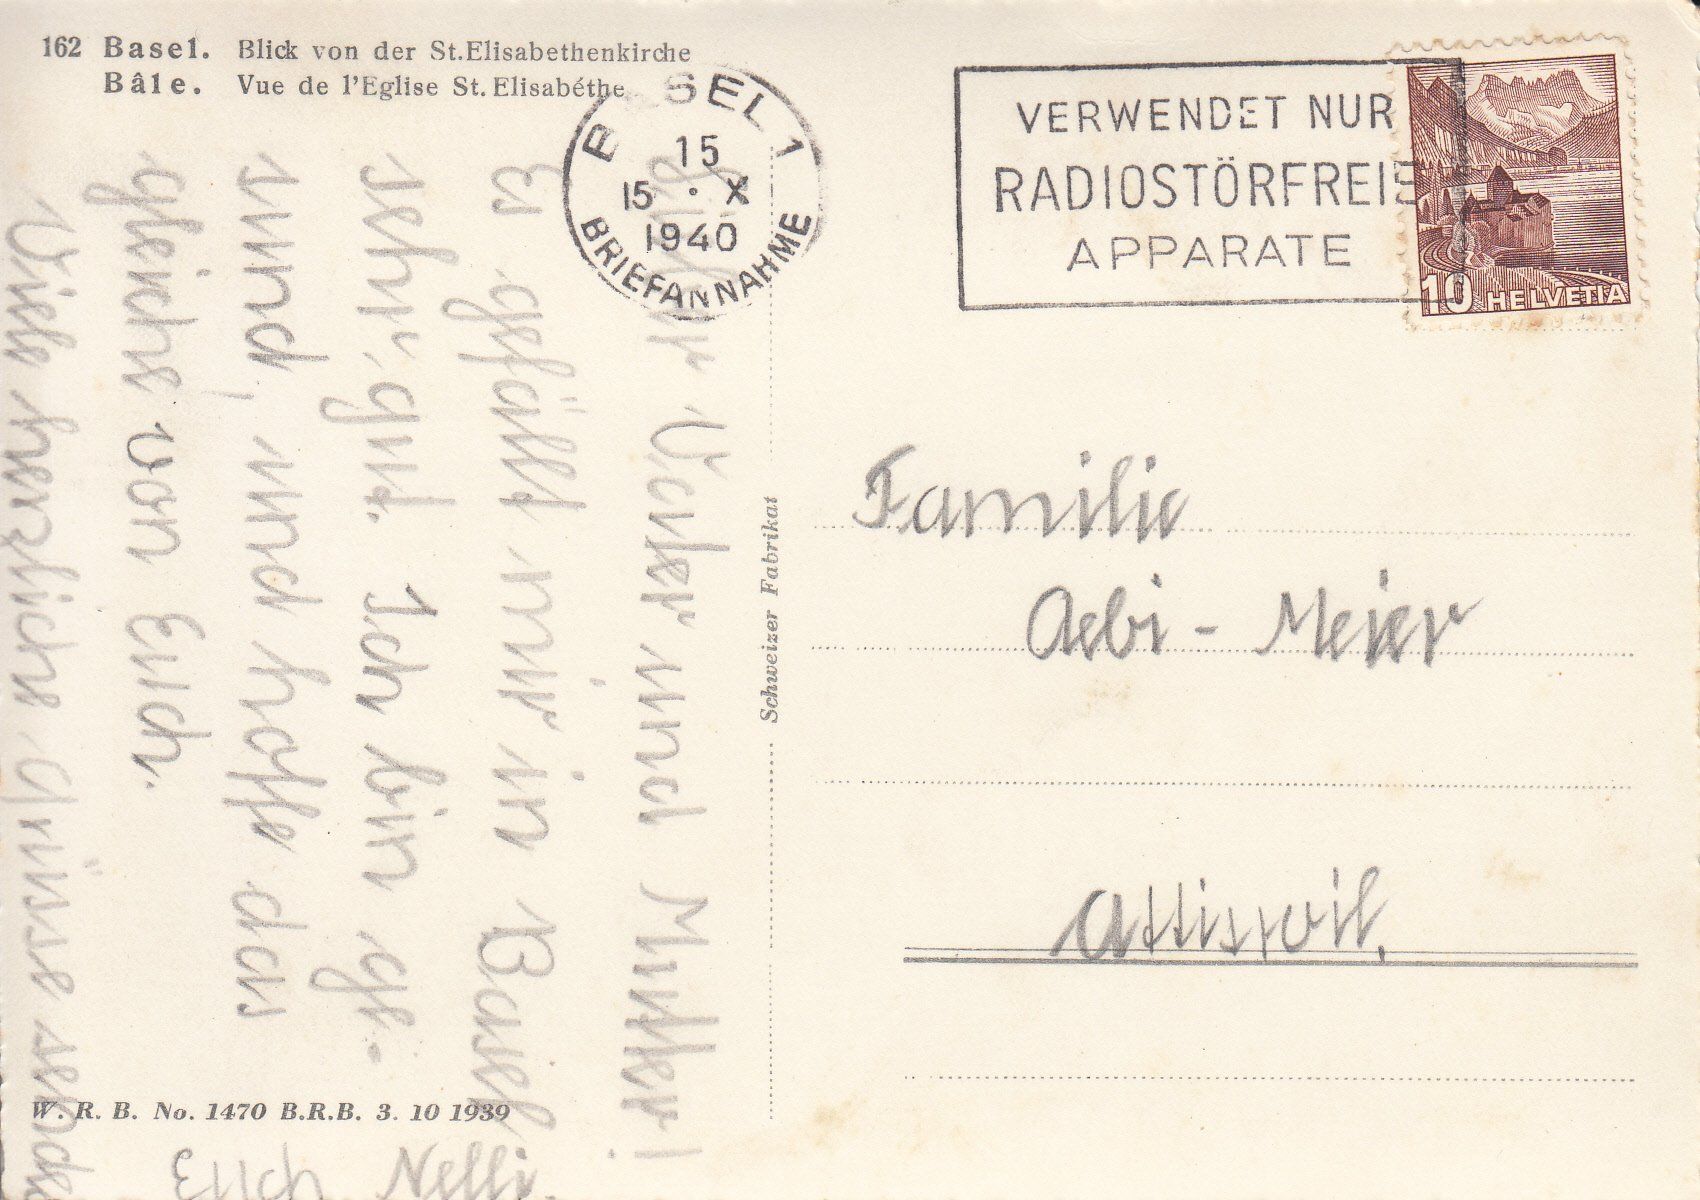 162 Basel. Blick von der St.Elisabethenkirche
Bâle. Vue de l'Eglise St. Elisabéthe
BASEL 1
15
15 · X
1940
BRIEFANNAHME
VERWENDET NUR
RADIOSTÖRFREIE
APPARATE
10 HELVETIA
Lieber Vater und Mutter!
Es gefällt mir in Basel
sehr gut. Ich bin ge-
sund, und hoffe das
gleiche von Euch.
Viele herzliche Grüsse sendet
Euch Nelli.
Schweizer Fabrikat
Familie
Aebi - Meier
Attiswil.
W. R. B. No. 1470 B.R.B. 3. 10 1939